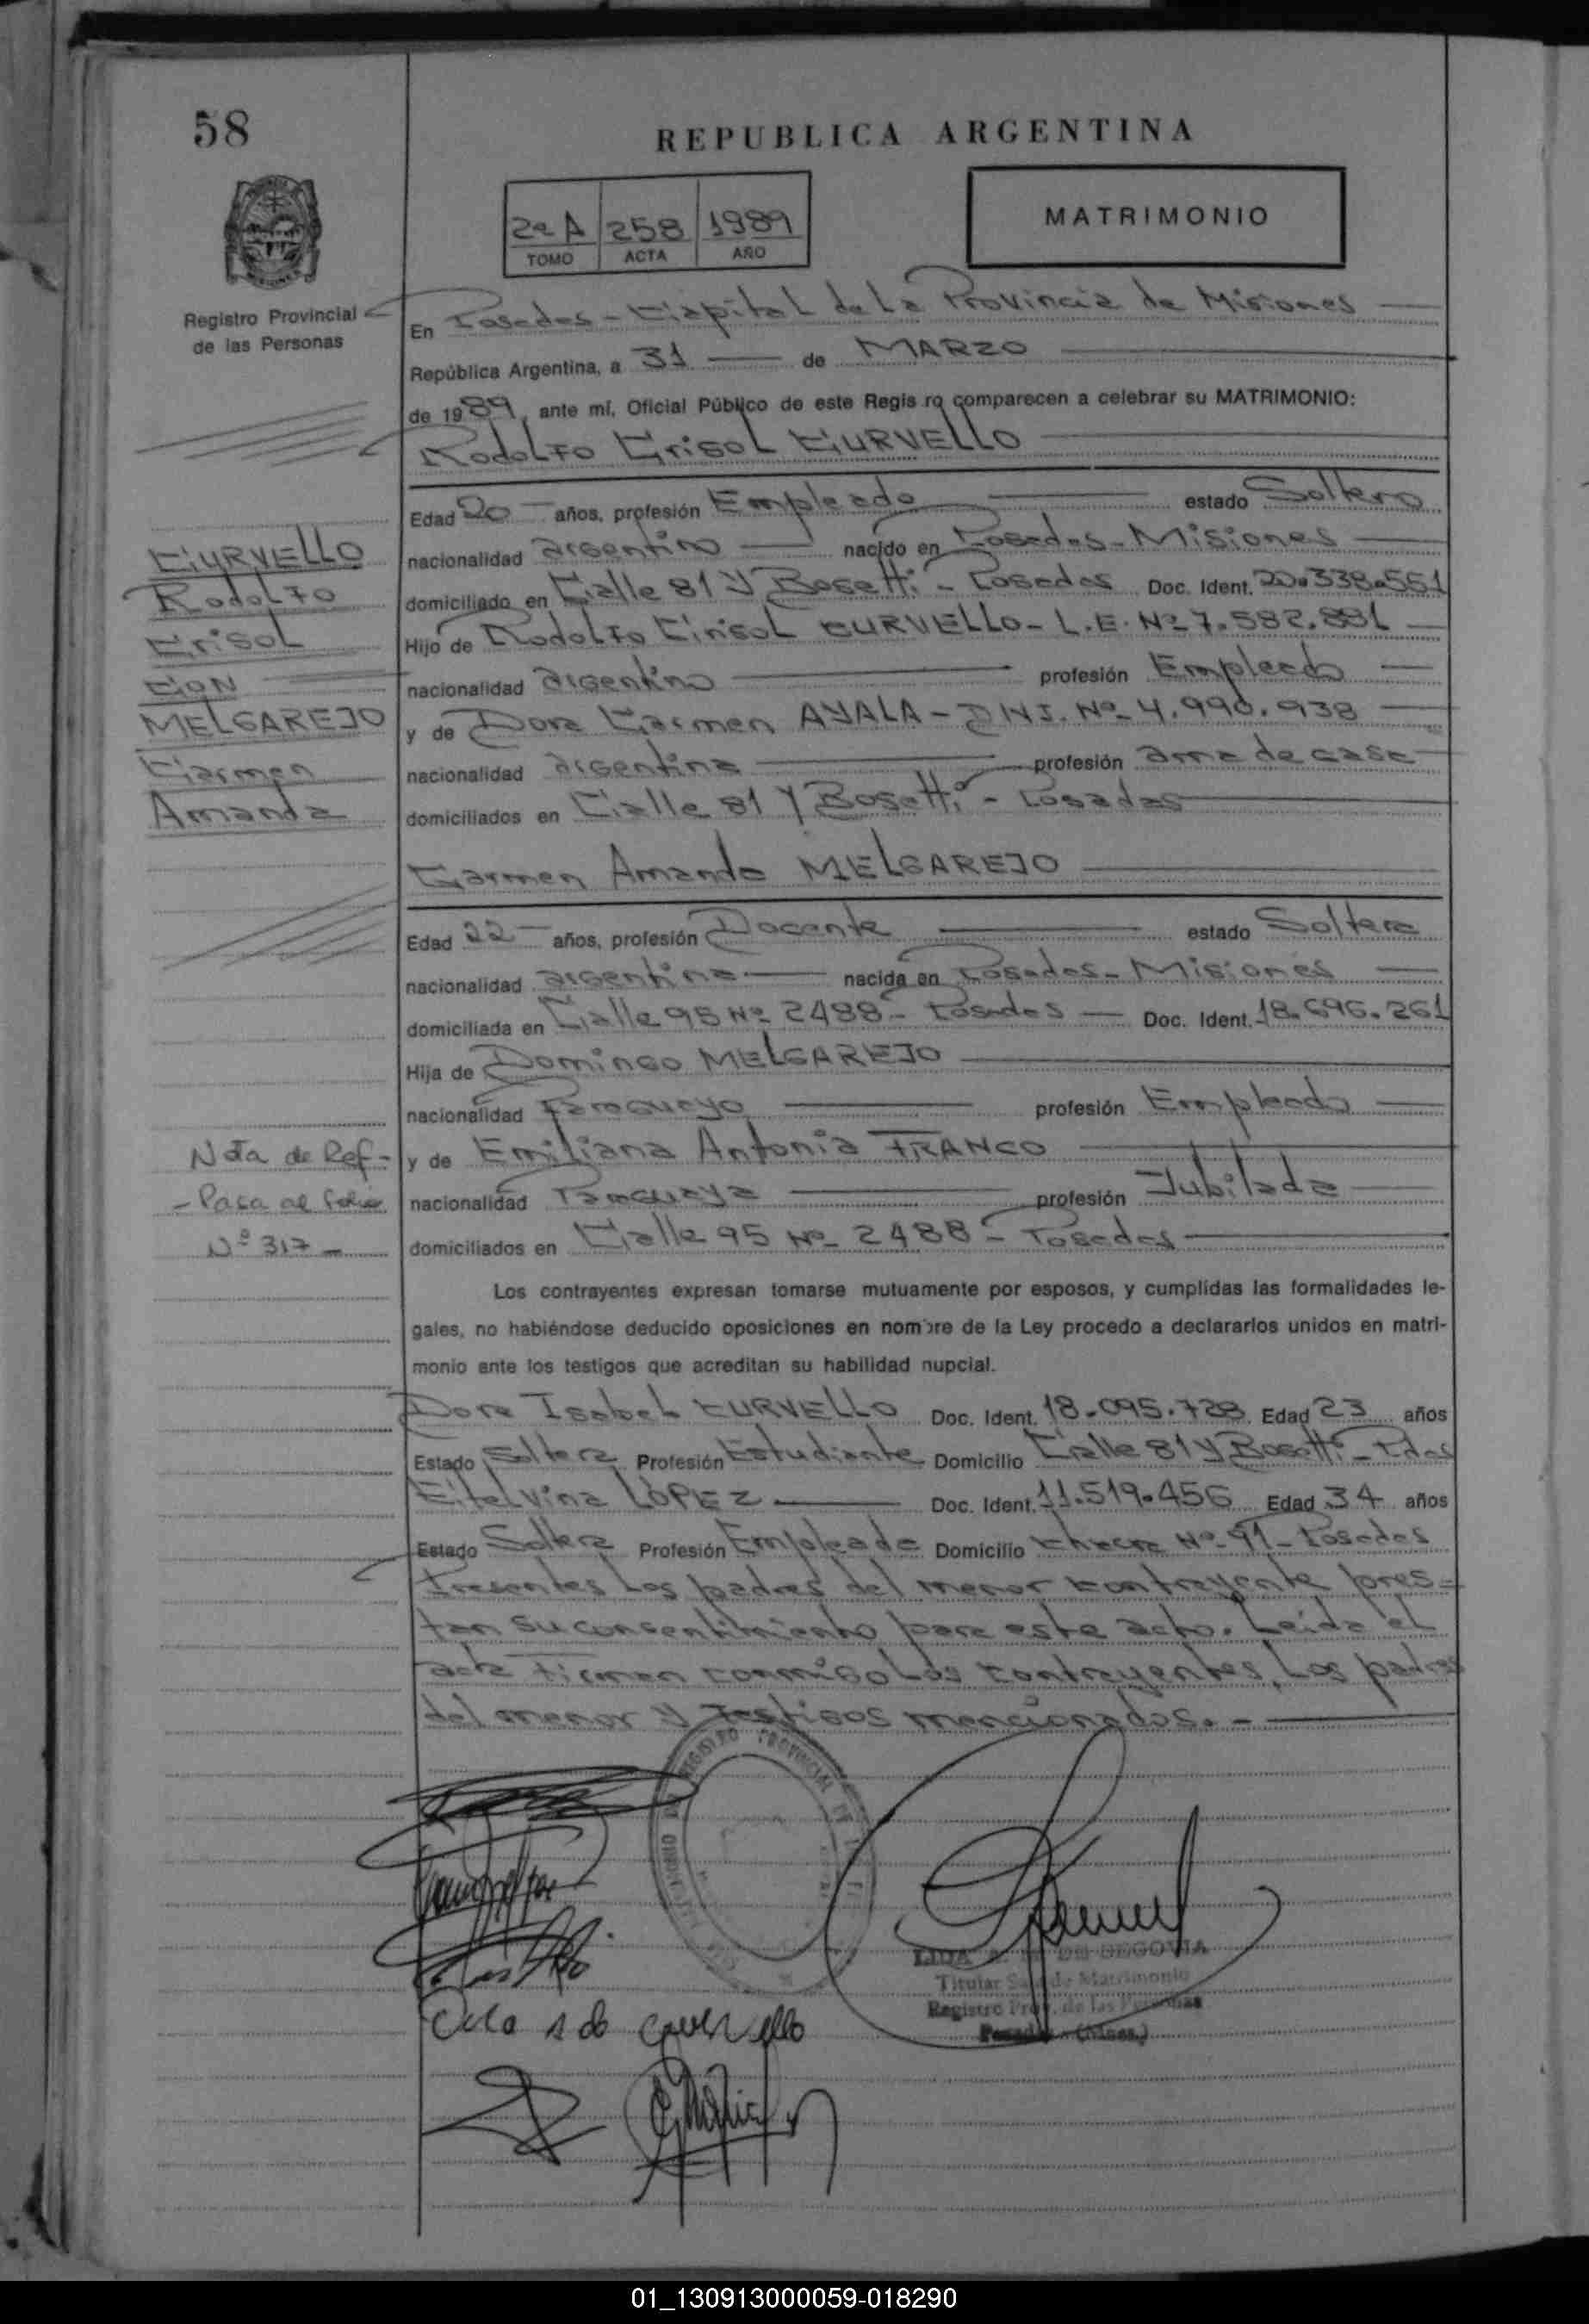 58
REPUBLICA ARGENTINA
2º A 258 1989
TOMO ACTA AÑO
MATRIMONIO
Registro Provincial
de las Personas
En Posadas - Capital de La Provincia de Misiones
República Argentina, a 31 de MARZO
de 1989, ante mí, Oficial Público de este Regis ro comparecen a celebrar su MATRIMONIO:
Rodolfo Crisol CURVELLO
Edad 20 años, profesión Empleado estado Soltero
nacionalidad argentino nacido en Posadas - Misiones
domiciliado en Calle 81 y Bosetti - Posadas Doc. Ident. 20.338.561
Hijo de Rodolfo Crisol CURVELLO - L.E. Nº 7.582.881
nacionalidad argentino profesión Empleado
y de Dora Carmen AYALA - DNI. Nº 4.990.938
nacionalidad argentina profesión ama de casa
domiciliados en Calle 81 y Bosetti - Posadas
Carmen Amanda MELGAREJO
CURVELLO
Rodolfo
Crisol
CON
MELGAREJO
Carmen
Amanda
Edad 22 años, profesión Docente estado Soltera
nacionalidad argentina nacida en Posadas - Misiones
domiciliada en Calle 95 Nº 2488 - Posadas Doc. Ident. 18.696.261
Hija de Domingo MELGAREJO
nacionalidad Paraguayo profesión Empleado
y de Emiliana Antonia FRANCO
nacionalidad Paraguaya profesión Jubilada
domiciliados en Calle 95 Nº 2488 - Posadas
Nota de Ref -
- Pasa al folio
Nº 317 -
Los contrayentes expresan tomarse mutuamente por esposos, y cumplidas las formalidades le-
gales, no habiéndose deducido oposiciones en nombre de la Ley procedo a declararlos unidos en matri-
monio ante los testigos que acreditan su habilidad nupcial.
Dora Isabel CURVELLO Doc. Ident. 18.095.728 Edad 23 años
Estado Soltera Profesión Estudiante Domicilio Calle 81 y Bosetti - Pdas
Etelvina LOPEZ Doc. Ident. 11.519.456 Edad 34 años
Estado Soltera Profesión Empleada Domicilio Chacra Nº 91 - Posadas
Presentes Los padres del menor contrayente pres=
tan su consentimiento para este acto. Leída el
acta firman conmigo Los contrayentes, Los padres
del menor y testigos mencionados. -
REGISTRO PROVINCIAL DE
LIDA DE SEGOVIA
Titular Sala de Matrimonio
Registro Prov. de las Personas
Posadas - (Mnes.)
01_130913000059-018290